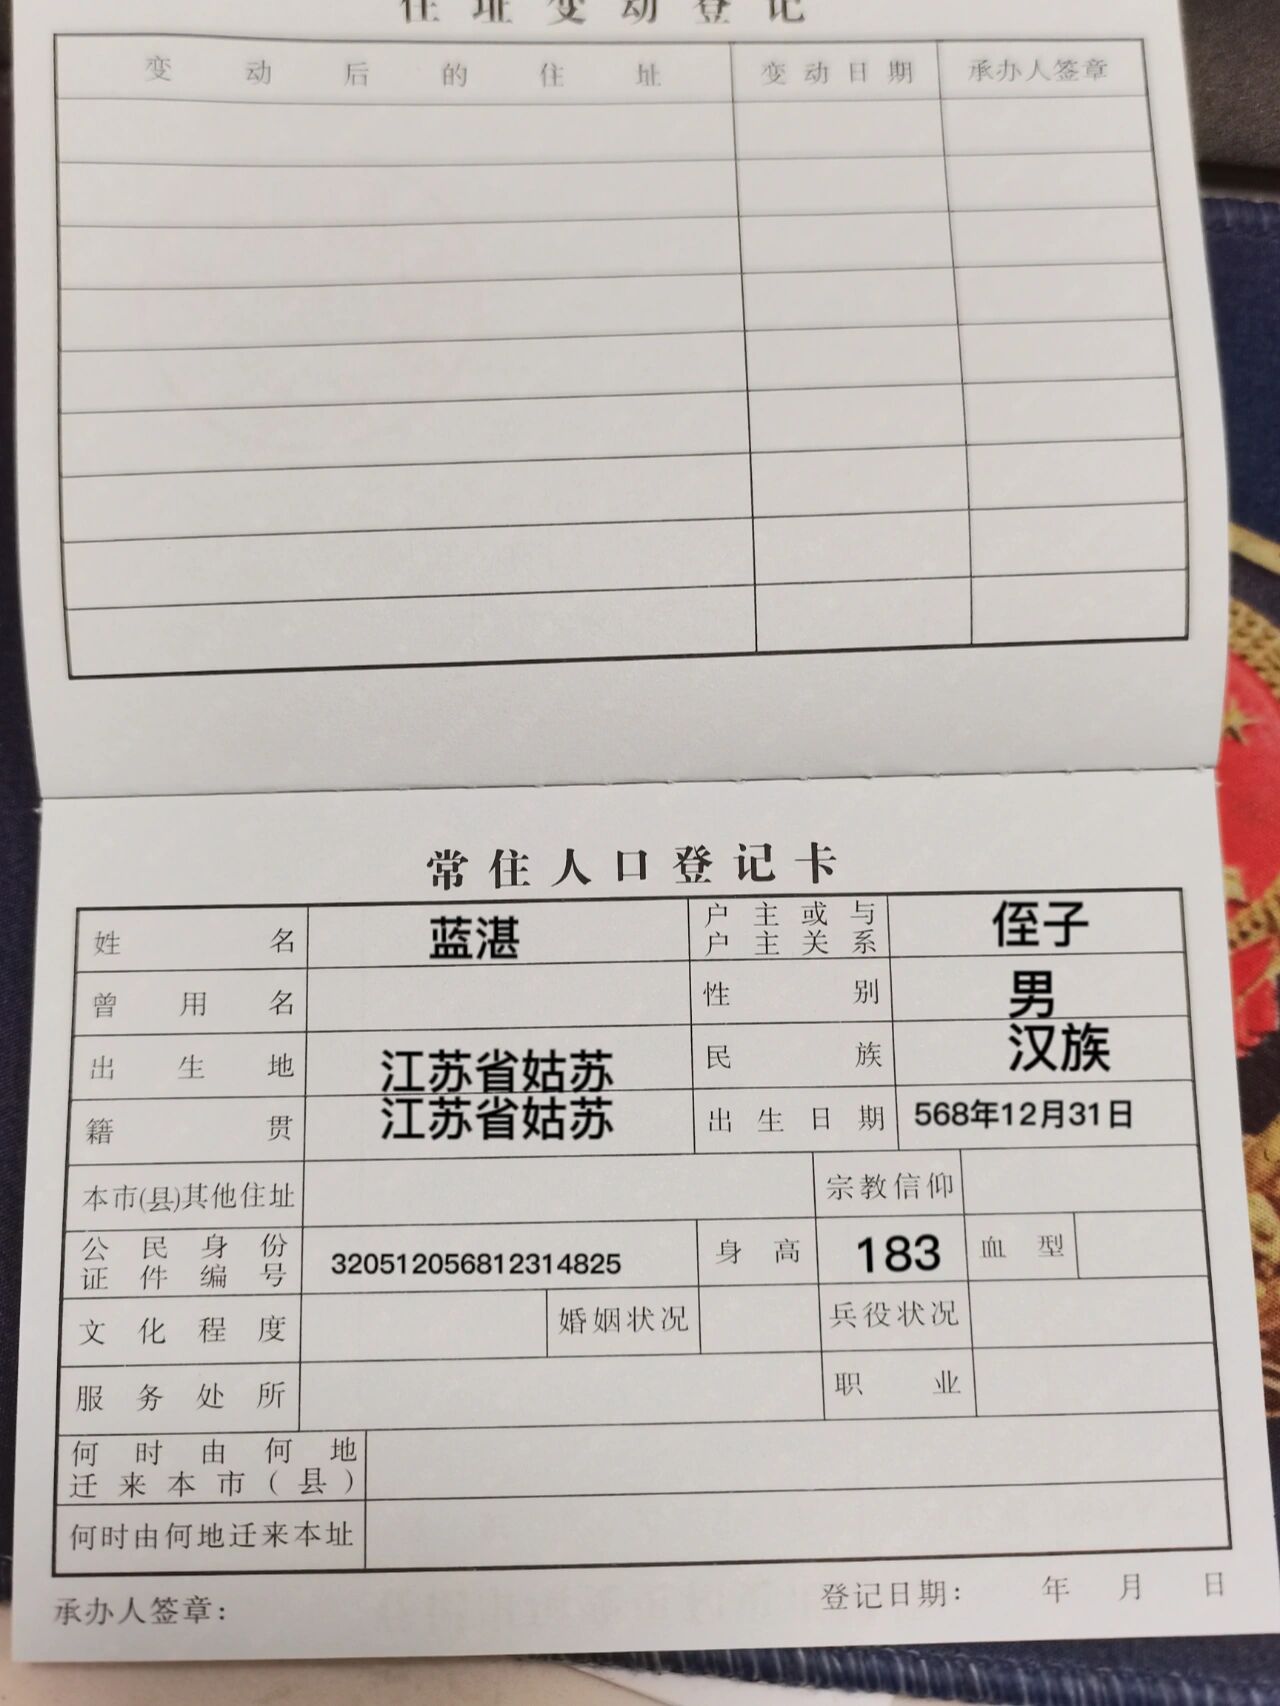 住址变动登记
变动后的住址 变动日期 承办人签章
常住人口登记卡
姓名 蓝湛 户主或与户主关系 侄子
曾用名 性别 男
出生地 江苏省姑苏 民族 汉族
籍贯 江苏省姑苏 出生日期 568年12月31日
本市(县)其他住址 宗教信仰
公民身份证件编号 320512056812314825 身高 183 血型
文化程度 婚姻状况 兵役状况
服务处所 职业
何时由何地迁来本市(县)
何时由何地迁来本址
承办人签章: 登记日期: 年 月 日